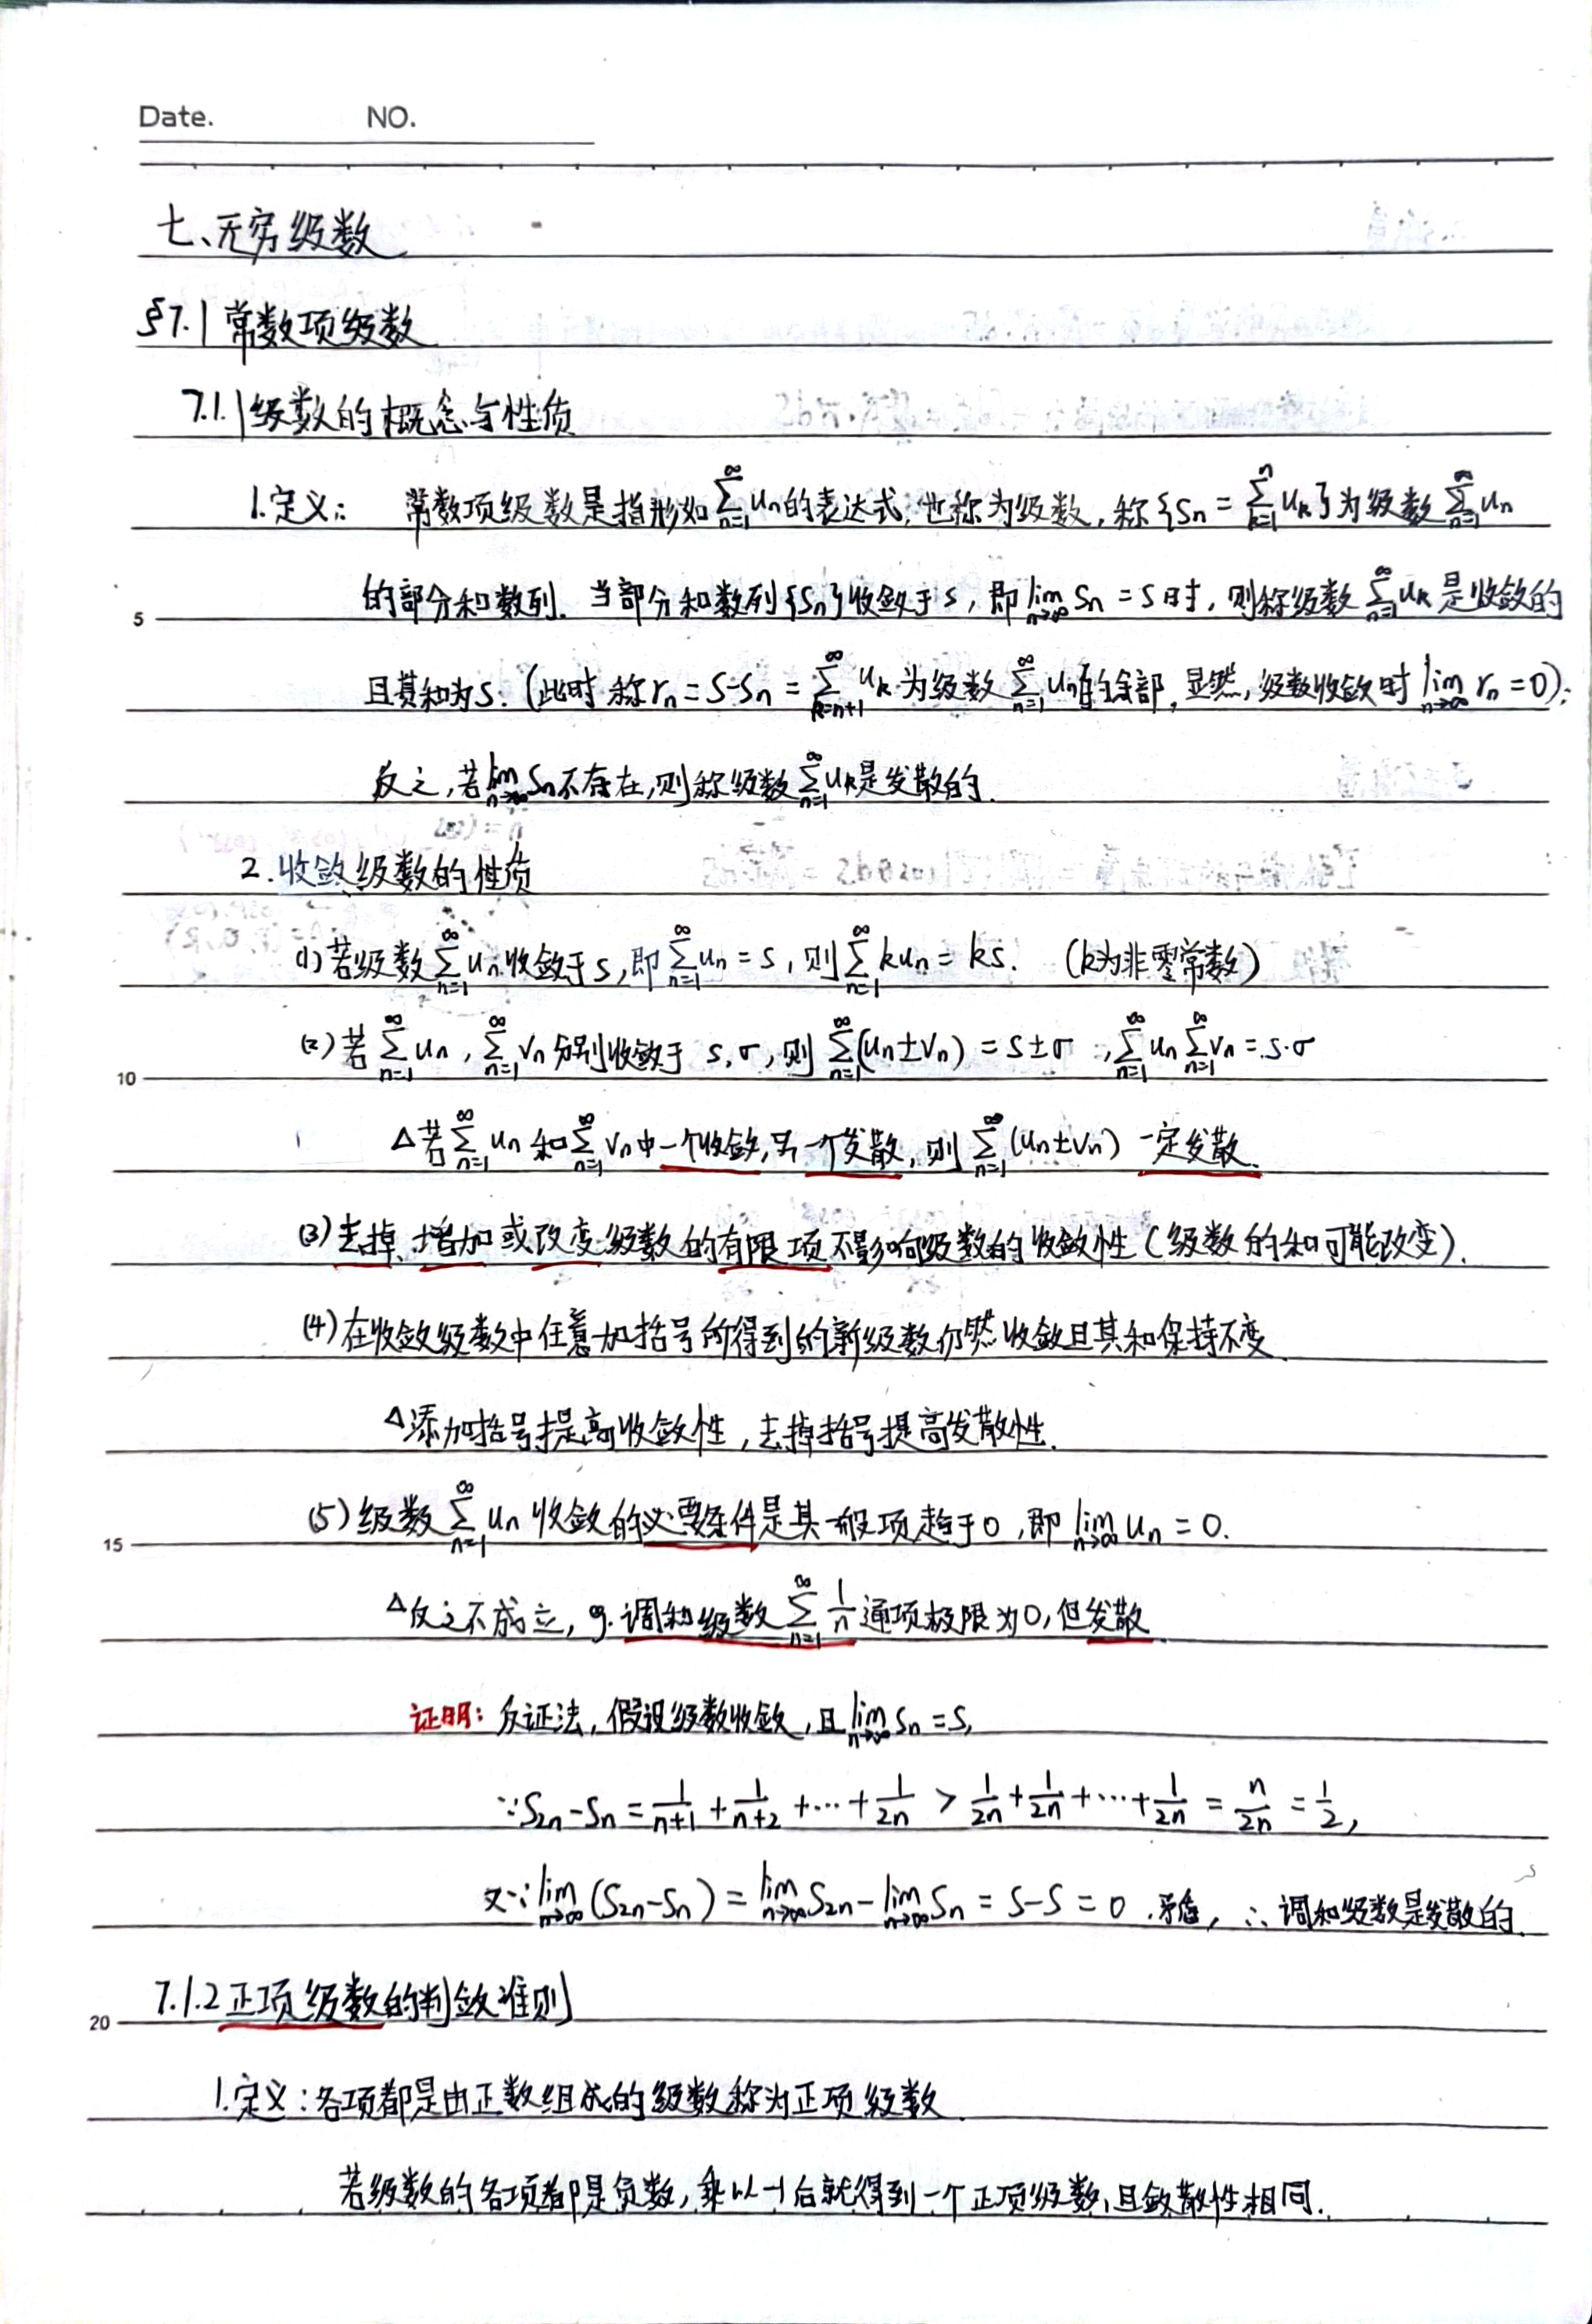 Date. NO.
七、无穷级数
§7.1 常数项级数
7.1.1 级数的概念与性质
1.定义: 常数项级数是指形如 $\sum_{n=1}^{\infty} u_n$ 的表达式,也称为级数,称 $\{S_n = \sum_{k=1}^{n} u_k\}$ 为级数 $\sum_{n=1}^{\infty} u_n$
5 的部分和数列. 当部分和数列 $\{S_n\}$ 收敛于 s, 即 $\lim_{n\to\infty} S_n = S$ 时, 则称级数 $\sum_{n=1}^{\infty} u_k$ 是收敛的
且其和为S. (此时称 $r_n = S - S_n = \sum_{k=n+1}^{\infty} u_k$ 为级数 $\sum_{n=1}^{\infty} u_n$ 的余部, 显然, 级数收敛时 $\lim_{n\to\infty} r_n = 0$);
反之, 若 $\lim_{n\to\infty} S_n$ 不存在, 则称级数 $\sum_{n=1}^{\infty} u_k$ 是发散的.
2.收敛级数的性质
(1) 若级数 $\sum_{n=1}^{\infty} u_n$ 收敛于 s, 即 $\sum_{n=1}^{\infty} u_n = s$, 则 $\sum_{n=1}^{\infty} k u_n = ks$. (k为非零常数)
10 (2) 若 $\sum_{n=1}^{\infty} u_n$, $\sum_{n=1}^{\infty} v_n$ 分别收敛于 s, σ, 则 $\sum_{n=1}^{\infty} (u_n \pm v_n) = s \pm σ$, $\sum_{n=1}^{\infty} u_n \sum_{n=1}^{\infty} v_n = s \cdot σ$
△若 $\sum_{n=1}^{\infty} u_n$ 和 $\sum_{n=1}^{\infty} v_n$ 中一个收敛, 另一个发散, 则 $\sum_{n=1}^{\infty} (u_n \pm v_n)$ 一定发散.
(3) 去掉、增加或改变级数的有限项不影响级数的收敛性 (级数的和可能改变).
(4) 在收敛级数中任意加括号所得到的新级数仍然收敛且其和保持不变.
△添加括号提高收敛性, 去掉括号提高发散性.
15 (5) 级数 $\sum_{n=1}^{\infty} u_n$ 收敛的必要条件是其一般项趋于0, 即 $\lim_{n\to\infty} u_n = 0$.
△反之不成立, eg. 调和级数 $\sum_{n=1}^{\infty} \frac{1}{n}$ 通项极限为0, 但发散.
证明: 反证法, 假设级数收敛, 且 $\lim_{n\to\infty} S_n = S$,
∵ $S_{2n} - S_n = \frac{1}{n+1} + \frac{1}{n+2} + \cdots + \frac{1}{2n} > \frac{1}{2n} + \frac{1}{2n} + \cdots + \frac{1}{2n} = \frac{n}{2n} = \frac{1}{2}$,
又∵ $\lim_{n\to\infty} (S_{2n} - S_n) = \lim_{n\to\infty} S_{2n} - \lim_{n\to\infty} S_n = S - S = 0$. 矛盾, ∴ 调和级数是发散的.
20 7.1.2 正项级数的判敛准则
1.定义: 各项都是由正数组成的级数称为正项级数.
若级数的各项都是负数, 乘以-1后就得到一个正项级数, 且敛散性相同.